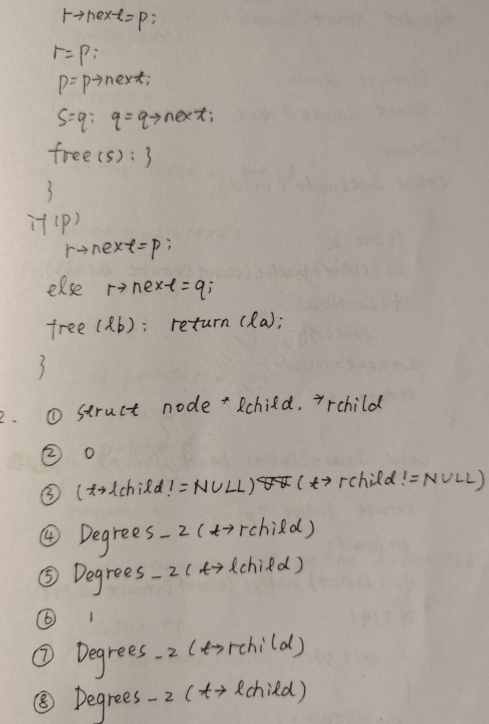 r→next=p;
r=p;
p=p→next;
s=q; q=q→next;
free(s): }
}
if(p)
r→next=p;
else r→next=q;
free(lb): return(la);
}
2. ① struct node *lchild, *rchild
② 0
③ (t→lchild!=NULL)&&(t→rchild!=NULL)
④ Degrees_2(t→rchild)
⑤ Degrees_2(t→lchild)
⑥ 1
⑦ Degrees_2(t→rchild)
⑧ Degrees_2(t→lchild)